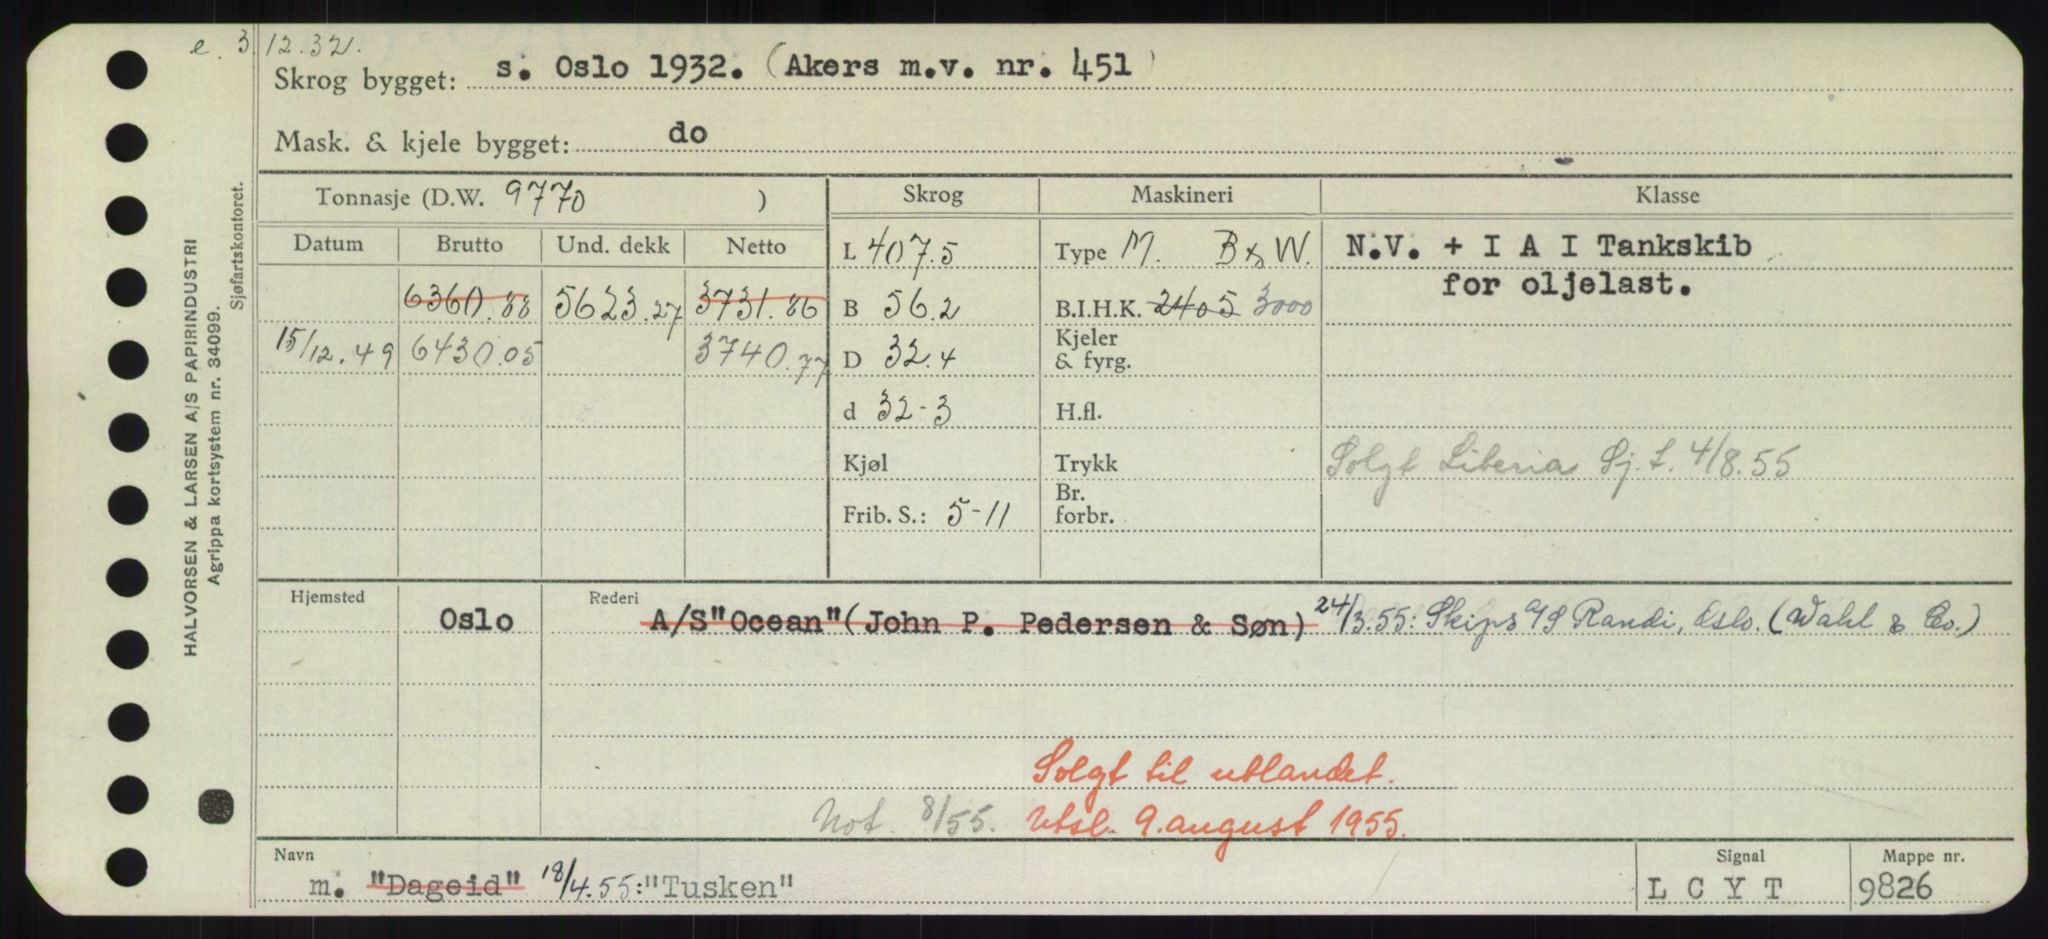 e. 3.12.32.
Skrog bygget: s. Oslo 1932. (Akers m.v. nr. 451)
Mask. & kjele bygget: do
Tonnasje (D.W. 9770 ) Skrog Maskineri Klasse
Datum Brutto Und. dekk Netto L 407.5 Type M. B & W. N.V. + I A I Tankskib
for oljelast.
6360.88 5623.27 3731.86 B 56.2 B.I.H.K. 2405 3000
15/12.49 6430.05 3740.77 D 32.4 Kjeler & fyrg.
d 32-3 H.fl.
Kjøl Trykk Solgt Liberia Sj.t. 4/8.55
Frib. S.: 5-11 Br. forbr.
Hjemsted Oslo Rederi A/S"Ocean"(John P. Pedersen & Søn) 24/3.55: Skips A/S Randi, Oslo. (Wahl & Co.)
Solgt til utlandet.
Not. 8/55. Utsl. 9. august 1955.
Navn Signal Mappe nr.
m. "Dageid" 18/4.55: "Tusken" L C Y T 9826
HALVORSEN & LARSEN A/S PAPIRINDUSTRI
Agrippa kortsystem nr. 34099.
Sjøfartskontoret.